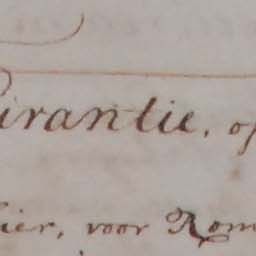 irantie, of
ier, voor Rom